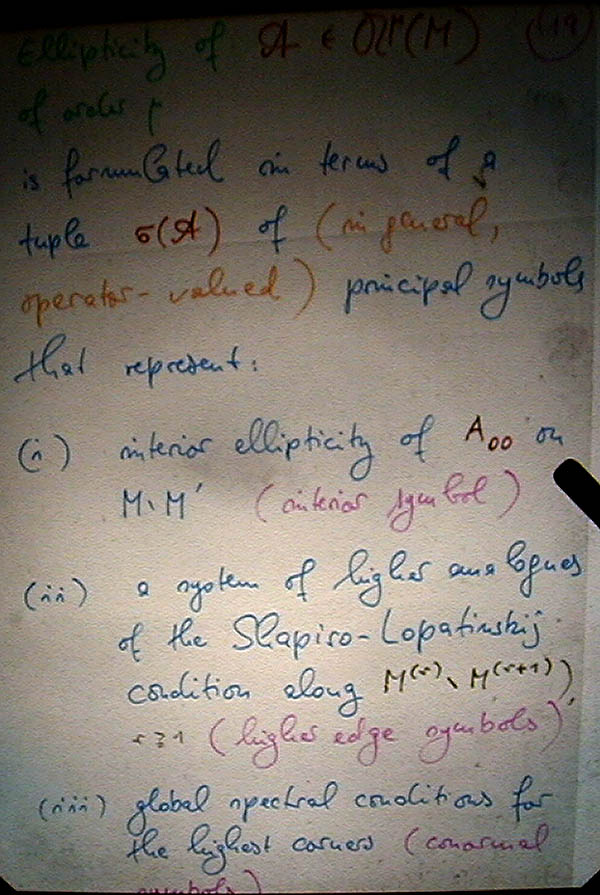 Ellipticity of 𝒜 ∈ 𝔄^μ(M) (19)
of order μ
is formulated in terms of a
tuple σ(𝒜) of (in general,
operator-valued) principal symbols
that represent:
(i) interior ellipticity of A₀₀ on
M∖M′ (interior symbol)
(ii) a system of higher analogues
of the Shapiro-Lopatinskij
condition along M^(r)∖M^(r+1),
r≥1 (higher edge symbols)
(iii) global spectral conditions for
the highest corners (conormal
symbols)